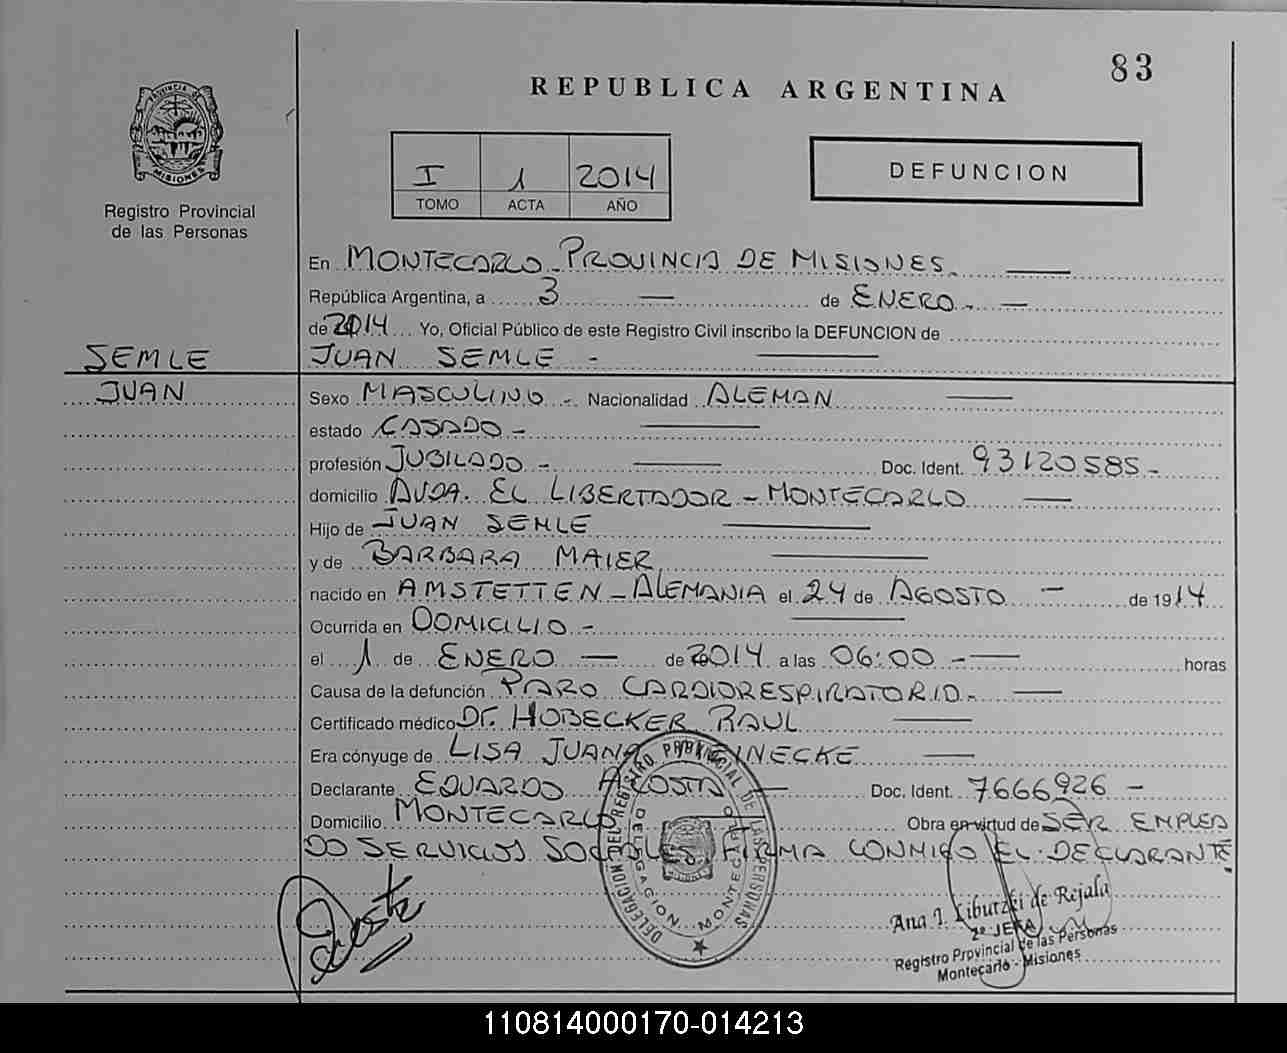 83
REPUBLICA ARGENTINA
PROVINCIA DE
MISIONES
Registro Provincial
de las Personas
I 1 2014
TOMO ACTA AÑO
DEFUNCION
En MONTECARLO - PROVINCIA DE MISIONES.
República Argentina, a 3 — de ENERO - —
de 2014 Yo, Oficial Público de este Registro Civil inscribo la DEFUNCION de
SEMLE JUAN SEMLE - —
JUAN
Sexo MASCULINO - Nacionalidad ALEMAN —
estado CASADO - —
profesión JUBILADO - — Doc. Ident. 93120585 -
domicilio AVDA. EL LIBERTADOR - MONTECARLO —
Hijo de JUAN SEMLE —
y de BARBARA MAIER —
nacido en AMSTETTEN - ALEMANIA el 24 de AGOSTO — de 1914
Ocurrida en DOMICILIO - —
el 1 de ENERO — de 2014 a las 06:00 - — horas
Causa de la defunción PARO CARDIORESPIRATORIO - —
Certificado médico Dr. HOBECKER RAUL —
Era cónyuge de LISA JUANA REINECKE —
Declarante EDUARDO ACOSTA — Doc. Ident. 7666926 -
Domicilio MONTECARLO Obra en virtud de SER EMPLEA
DO SERVICIOS SOCIALES, FIRMA CONMIGO EL DECLARANTE.
DELEGACION DEL REGISTRO PROVINCIAL DE LAS PERSONAS
DELEGACION MONTECARLO
Acosta
Ana I. Libutzki de Rejala
2º JEFA
Registro Provincial de las Personas
Montecarlo - Misiones
110814000170-014213